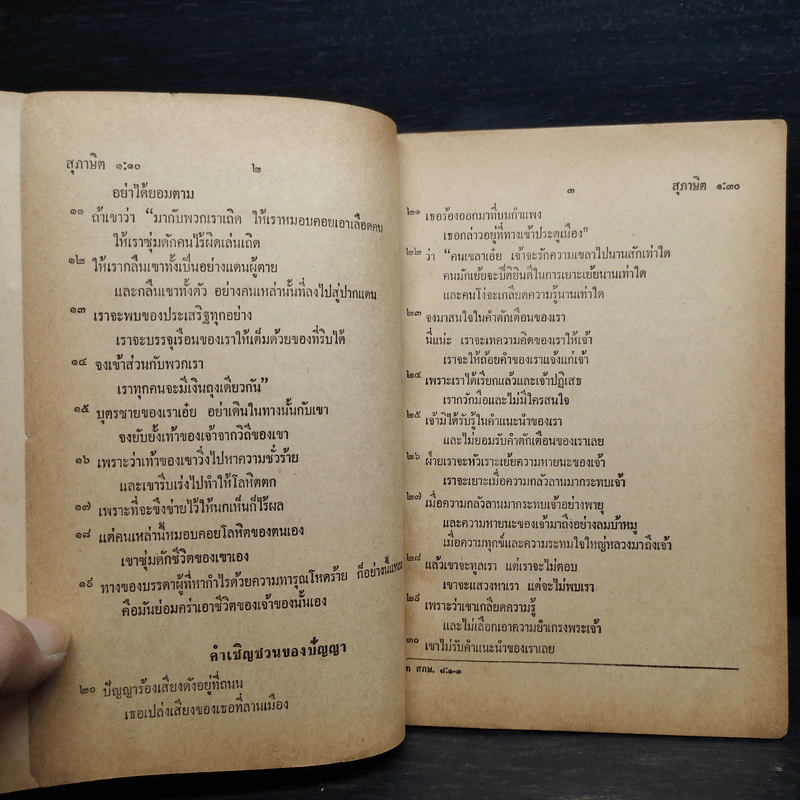 สุภาษิต ๑:๑๐
๒
อย่าได้ยอมตาม
๑๑ ถ้าเขาว่า “มากับพวกเราเถิด ให้เราหมอบคอยเอาเลือดคน
ให้เราซุ่มดักคนไร้ผิดเล่นเถิด
๑๒ ให้เรากลืนเขาทั้งเป็นอย่างแดนผู้ตาย
และกลืนเขาทั้งตัว อย่างคนเหล่านั้นที่ลงไปสู่ปากแดน
๑๓ เราจะพบของประเสริฐทุกอย่าง
เราจะบรรจุเรือนของเราให้เต็มด้วยของที่ริบได้
๑๔ จงเข้าส่วนกับพวกเรา
เราทุกคนจะมีเงินถุงเดียวกัน”
๑๕ บุตรชายของเราเอ๋ย อย่าเดินในทางนั้นกับเขา
จงยับยั้งเท้าของเจ้าจากวิถีของเขา
๑๖ เพราะว่าเท้าของเขาวิ่งไปหาความชั่วร้าย
และเขารีบเร่งไปทำให้โลหิตตก
๑๗ เพราะที่จะขึงข่ายไว้ให้นกเห็นก็ไร้ผล
๑๘ แต่คนเหล่านี้หมอบคอยโลหิตของตนเอง
เขาซุ่มดักชีวิตของเขาเอง
๑๙ ทางของบรรดาผู้ที่หากำไรด้วยความทารุณโหดร้าย ก็อย่างนี้แหละ
คือมันย่อมคร่าเอาชีวิตของเจ้าของนั้นเอง
คำเชิญชวนของปัญญา
๒๐ ปัญญาร้องเสียงดังอยู่ที่ถนน
เธอเปล่งเสียงของเธอที่ลานเมือง
๓
สุภาษิต ๑:๓๐
๒๑ เธอร้องออกมาที่บนกำแพง
เธอกล่าวอยู่ที่ทางเข้าประตูเมืองก
๒๒ ว่า “คนเขลาเอ๋ย เจ้าจะรักความเขลาไปนานสักเท่าใด
คนมักเย้ยจะปีติยินดีในการเยาะเย้ยนานเท่าใด
และคนโง่จะเกลียดความรู้นานเท่าใด
๒๓ จงมาสนใจในคำตักเตือนของเรา
นี่แน่ะ เราจะเทความคิดของเราให้เจ้า
เราจะให้ถ้อยคำของเราแจ้งแก่เจ้า
๒๔ เพราะเราได้เรียกแล้วและเจ้าปฏิเสธ
เรากวักมือและไม่มีใครสนใจ
๒๕ เจ้ามิได้รับรู้ในคำแนะนำของเรา
และไม่ยอมรับคำตักเตือนของเราเลย
๒๖ ฝ่ายเราจะหัวเราะเย้ยความหายนะของเจ้า
เราจะเยาะเมื่อความกลัวลานมากระทบเจ้า
๒๗ เมื่อความกลัวลานมากระทบเจ้าอย่างพายุ
และความหายนะของเจ้ามาถึงอย่างลมบ้าหมู
เมื่อความทุกข์และความระทมใจใหญ่หลวงมาถึงเจ้า
๒๘ แล้วเขาจะทูลเรา แต่เราจะไม่ตอบ
เขาจะแสวงหาเรา แต่จะไม่พบเรา
๒๙ เพราะว่าเขาเกลียดความรู้
และไม่เลือกเอาความยำเกรงพระเจ้า
๓๐ เขาไม่รับคำแนะนำของเราเลย
ก สภษ. ๘:๑-๓